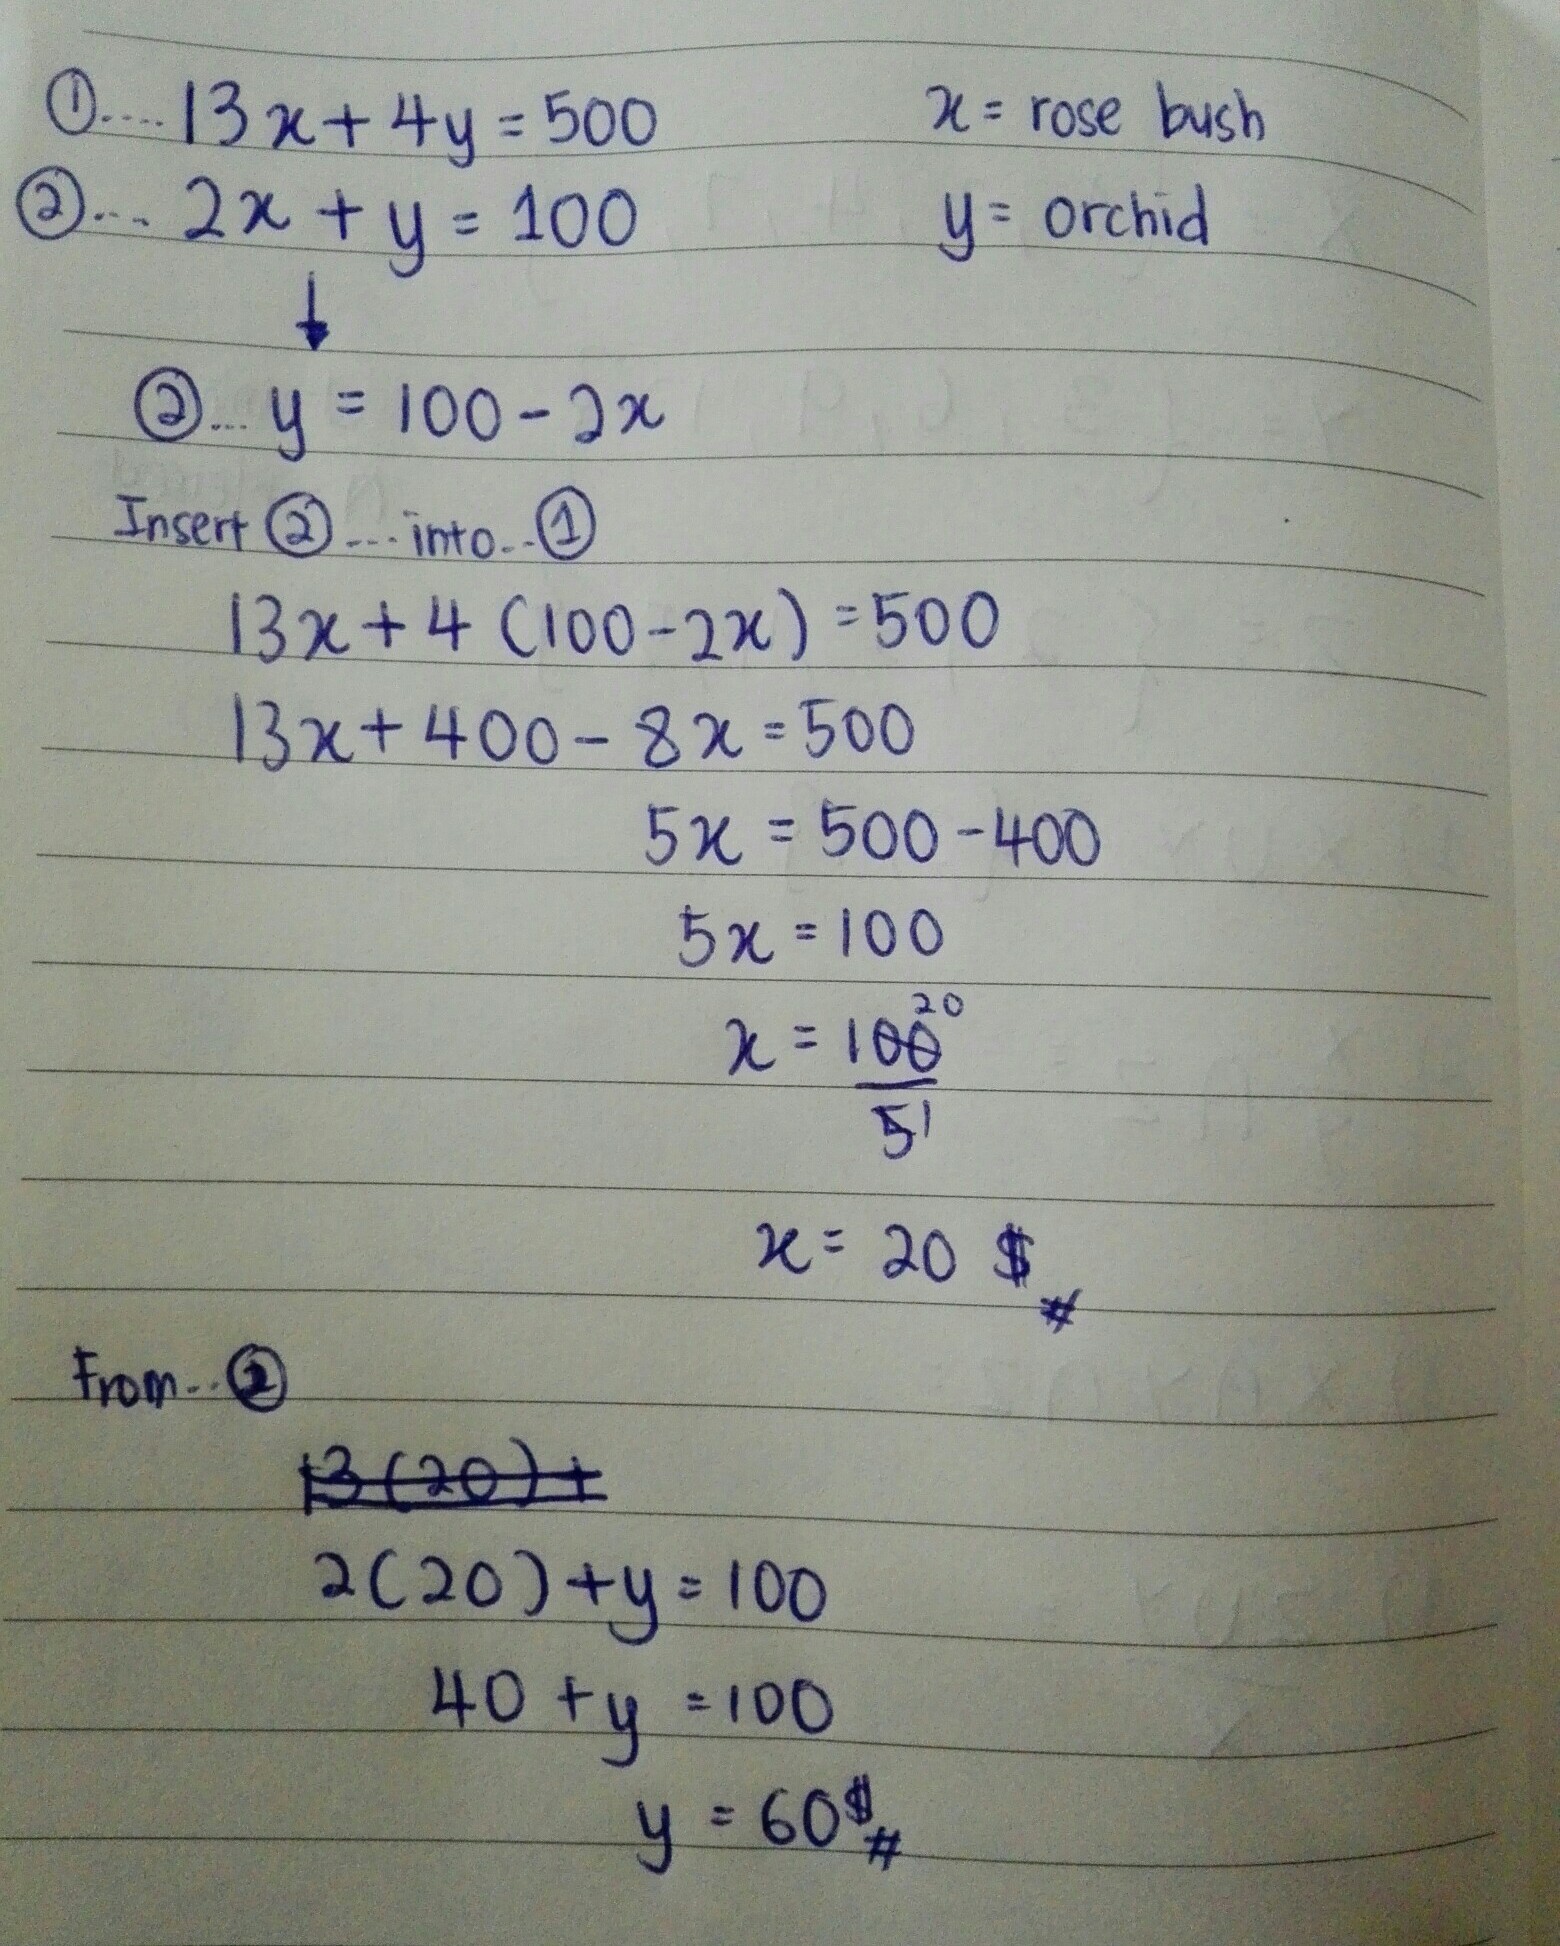 ①.... 13x + 4y = 500 x = rose bush
②... 2x + y = 100 y = orchid
↓
②... y = 100 - 2x
Insert ②... into.. ①
13x + 4 (100 - 2x) = 500
13x + 400 - 8x = 500
5x = 500 - 400
5x = 100
20
x = 100
5 1
x = 20 $ #
From.. ②
13(20) +
2(20) + y = 100
40 + y = 100
y = 60$ #